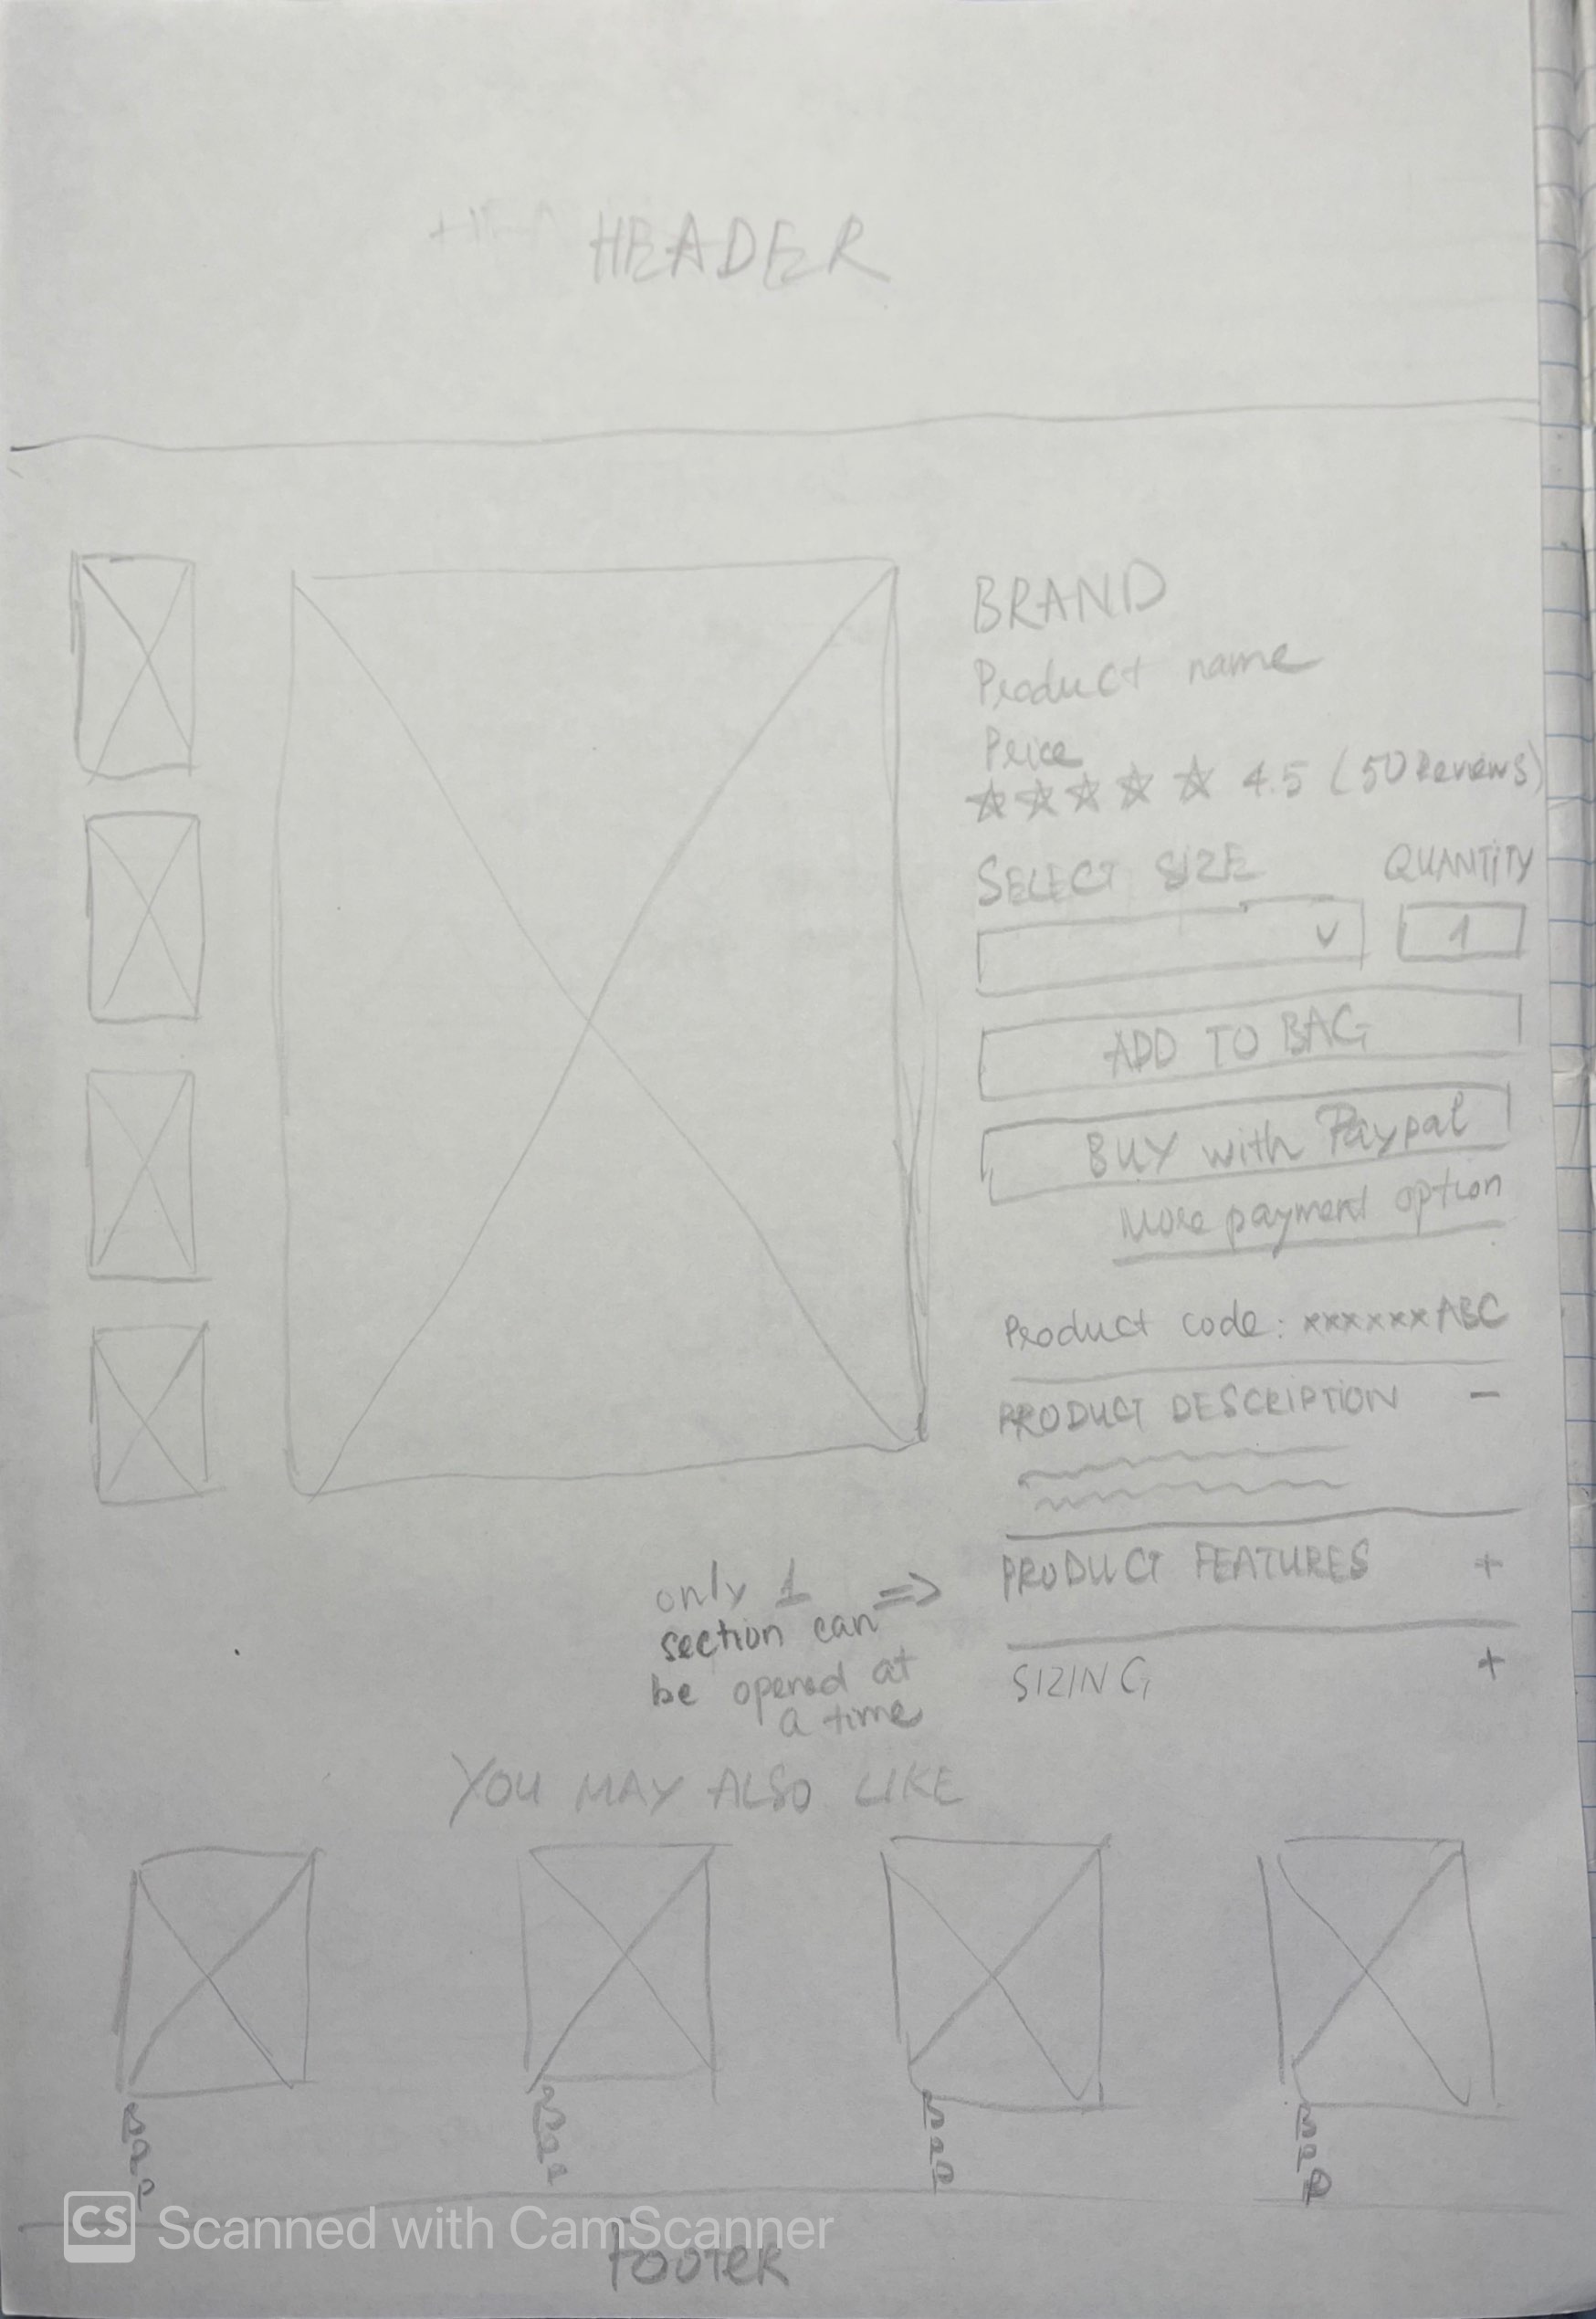 HEADER
BRAND
Product name
Price
4.5 (50 Reviews)
SELECT SIZE
QUANTITY
1
ADD TO BAG
BUY with Paypal
More payment option
Product code: xxxxxxABC
PRODUCT DESCRIPTION −
PRODUCT FEATURES +
only 1 =>
section can
be opened at
a time
SIZING +
YOU MAY ALSO LIKE
CS Scanned with CamScanner
FOOTER